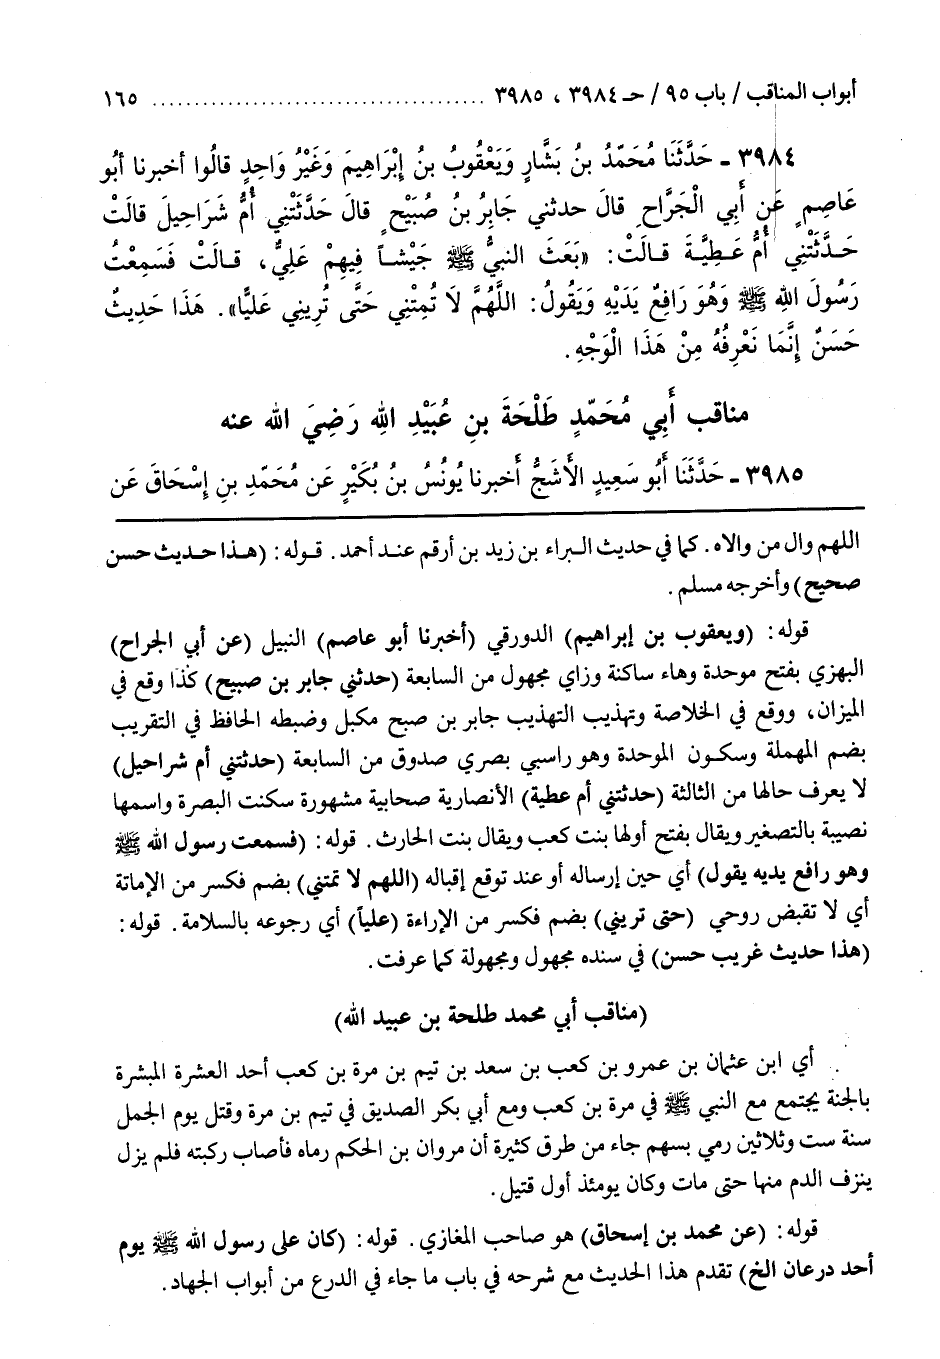 أبواب المناقب / باب ٩٥ / حـ ٣٩٨٤ ، ٣٩٨٥ ........................................ ١٦٥
٣٩٨٤ ـ حَدَّثَنَا مُحَمَّدُ بنُ بَشَّارٍ وَيَعْقُوبُ بنُ إِبْرَاهِيمَ وَغَيْرُ وَاحِدٍ قالُوا أخبرنا أبُو
عَاصِمٍ عَن أَبِي الْجَرَّاحِ قالَ حدثني جَابِرُ بنُ صُبَيْحٍ قالَ حَدَّثَتْنِي أُمُّ شَرَاحِيلَ قالَتْ
حَـدَّثَتْنِي أُمُّ عَـطِيَّةَ قـالَتْ: «بَعَثَ النبيُّ ﷺ جَيْشـاً فِيهِمْ عَلِيٌّ، قـالَتْ فَسَمِعْتُ
رَسُولَ اللهِ ﷺ وَهُوَ رَافِعٌ يَدَيْهِ وَيَقُولُ: اللَّهُمَّ لَا تُمِتْنِي حَتَّى تُرِينِي عَلِيًّا». هَذَا حَدِيثٌ
حَسَنٌ إِنَّمَا نَعْرِفُهُ مِنْ هَذَا الْوَجْهِ.
مناقب أَبِي مُحَمّدٍ طَلْحَةَ بنِ عُبَيْدِ اللهِ رَضِيَ الله عنه
٣٩٨٥ ـ حَدَّثَنَا أَبُو سَعِيدٍ الأَشَجُّ أخبرنا يُونُسُ بنُ بُكَيْرٍ عَن مُحَمّدِ بنِ إِسْحَاقَ عَن
اللهم وال من والاه. كما في حديث الـبراء بن زيد بن أرقم عنـد أحمد. قـوله: (هـذا حـديث حسن
صحيح) وأخرجه مسلم.
قوله: (ويعقوب بن إبراهيم) الدورقي (أخبرنا أبو عاصم) النبيل (عن أبي الجراح)
البهزي بفتح موحدة وهاء ساكنة وزاي مجهول من السابعة (حدثني جابر بن صبيح) كذا وقع في
الميزان، ووقع في الخلاصة وتهذيب التهذيب جابر بن صبح مكبل وضبطه الحافظ في التقريب
بضم المهملة وسكـون الموحدة وهو راسبي بصري صدوق من السابعة (حدثتني أم شراحيل)
لا يعرف حالها من الثالثة (حدثتني أم عطية) الأنصارية صحابية مشهورة سكنت البصرة واسمها
نصيبة بالتصغير ويقال بفتح أولها بنت كعب ويقال بنت الحارث. قوله: (فسمعت رسول الله ﷺ
وهو رافع يديه يقول) أي حين إرساله أو عند توقع إقباله (اللهم لا تمتني) بضم فكسر من الإماتة
أي لا تقبض روحي (حتى تريني) بضم فكسر من الإراءة (علياً) أي رجوعه بالسلامة. قوله:
(هذا حديث غريب حسن) في سنده مجهول ومجهولة كما عرفت.
(مناقب أبي محمد طلحة بن عبيد الله)
أي ابن عثمان بن عمرو بن كعب بن سعد بن تيم بن مرة بن كعب أحد العشرة المبشرة
بالجنة يجتمع مع النبي ﷺ في مرة بن كعب ومع أبي بكر الصديق في تيم بن مرة وقتل يوم الجمل
سنة ست وثلاثين رمي بسهم جاء من طرق كثيرة أن مروان بن الحكم رماه فأصاب ركبته فلم يزل
ينزف الدم منها حتى مات وكان يومئذ أول قتيل.
قوله: (عن محمد بن إسحاق) هو صاحب المغازي. قوله: (كان على رسول الله ﷺ يوم
أحد درعان الخ) تقدم هذا الحديث مع شرحه في باب ما جاء في الدرع من أبواب الجهاد.